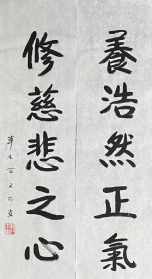 養浩然正氣
修慈悲之心